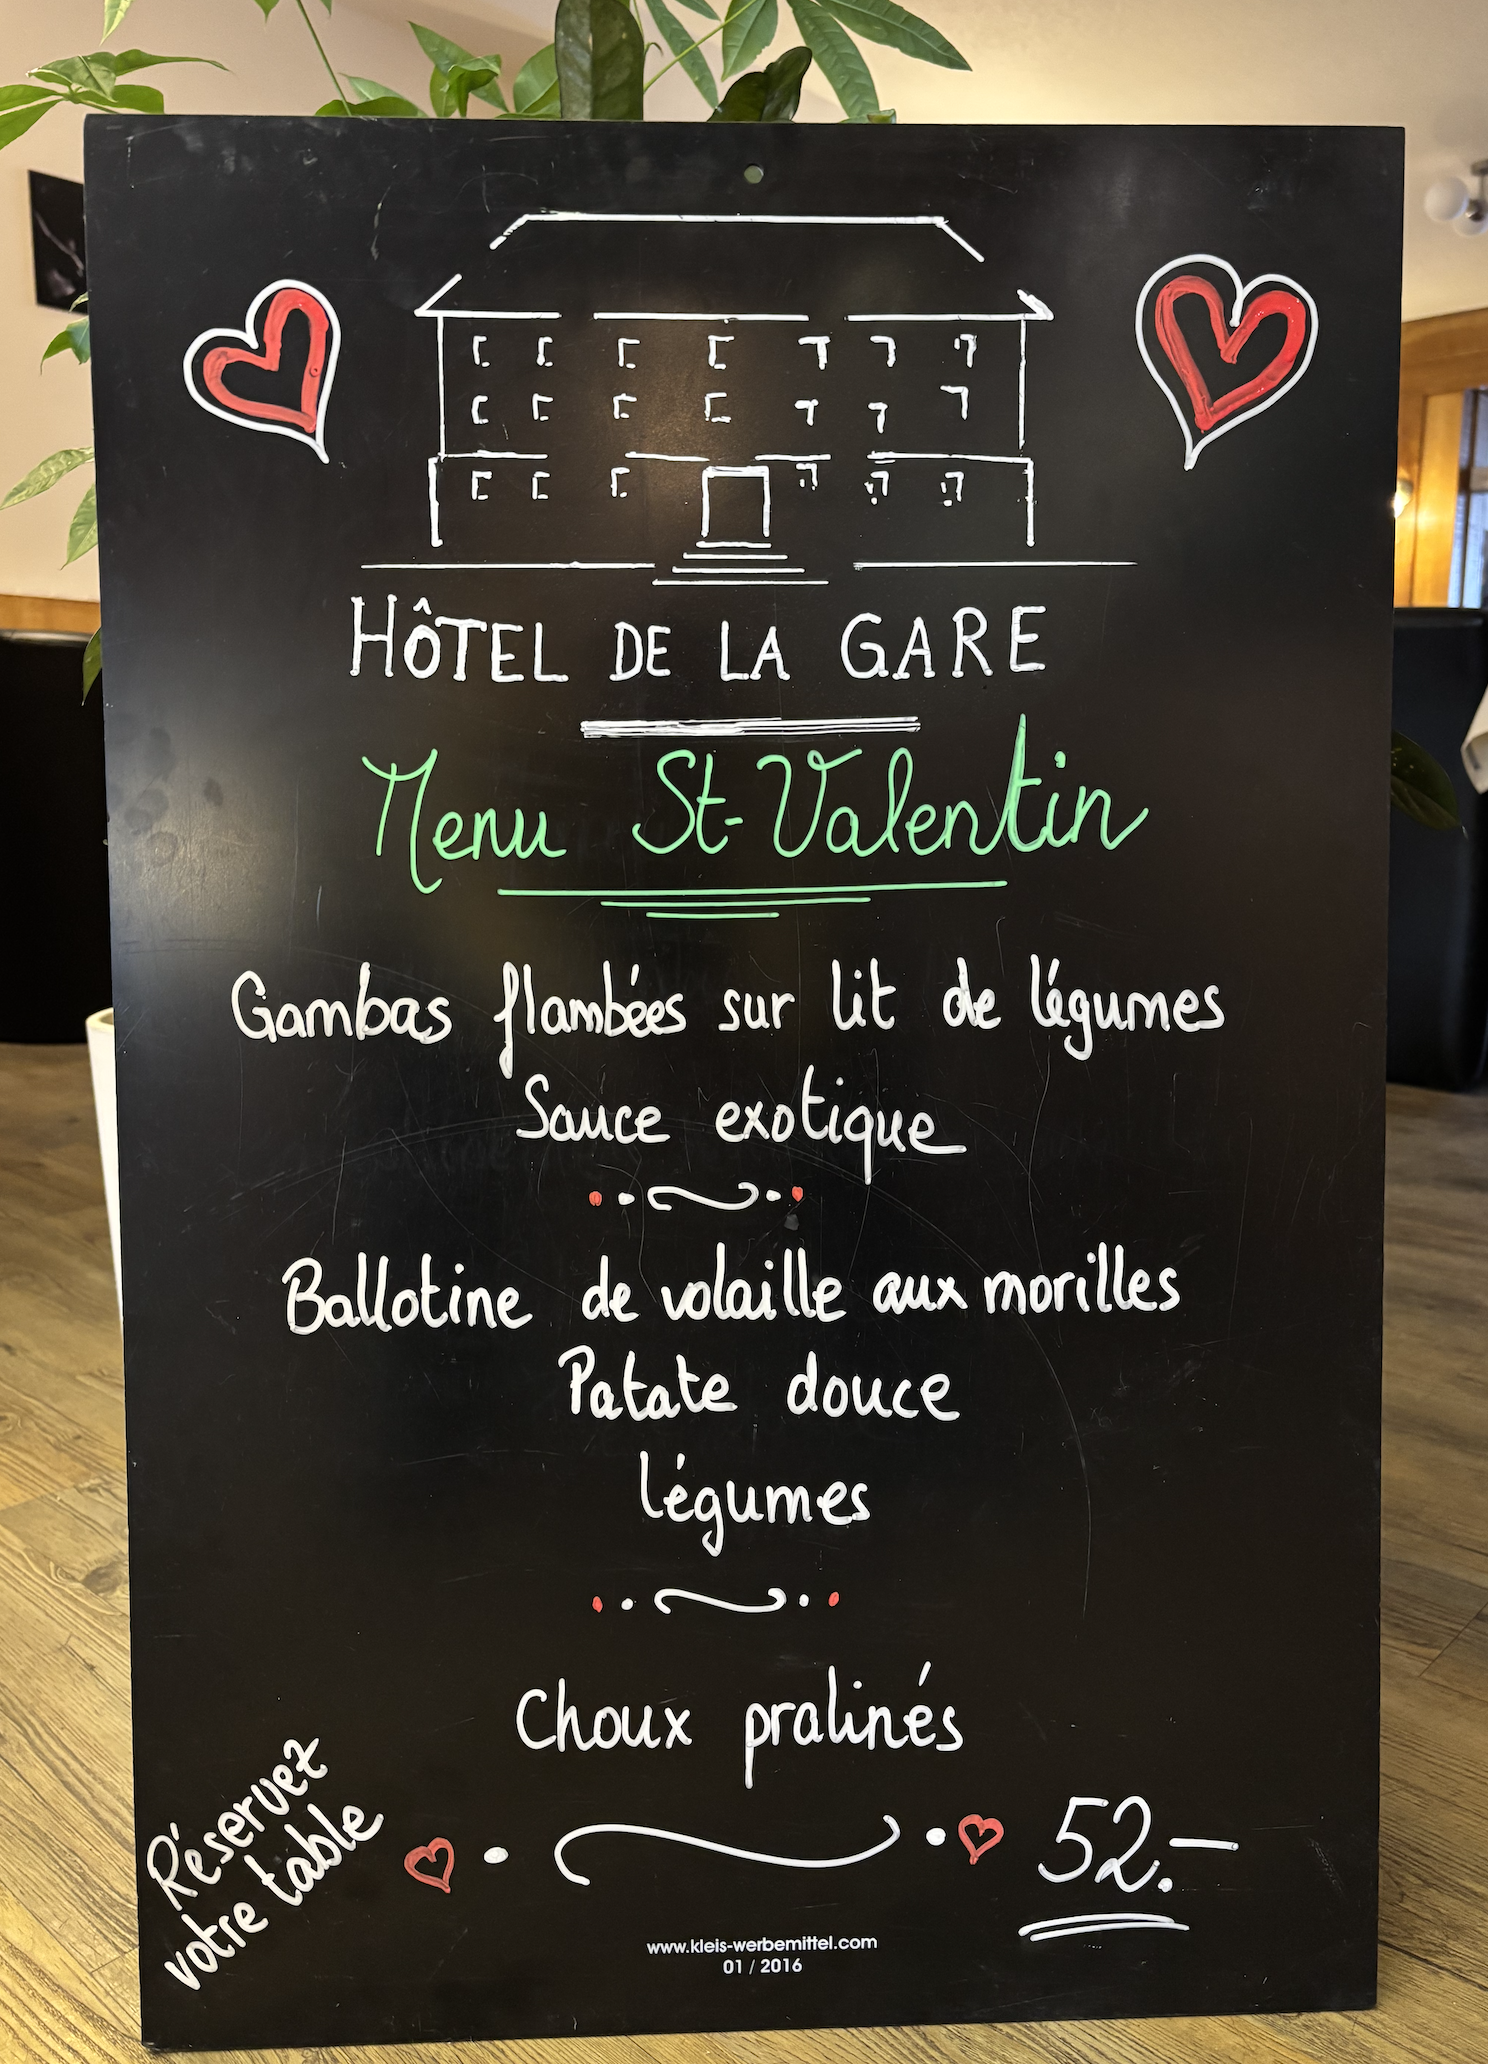 HÔTEL DE LA GARE
Menu St-Valentin
Gambas flambées sur lit de légumes
Sauce exotique
Ballotine de volaille aux morilles
Patate douce
légumes
Choux pralinés
Réservez
votre table
52.-
www.kleis-werbemittel.com
01 / 2016